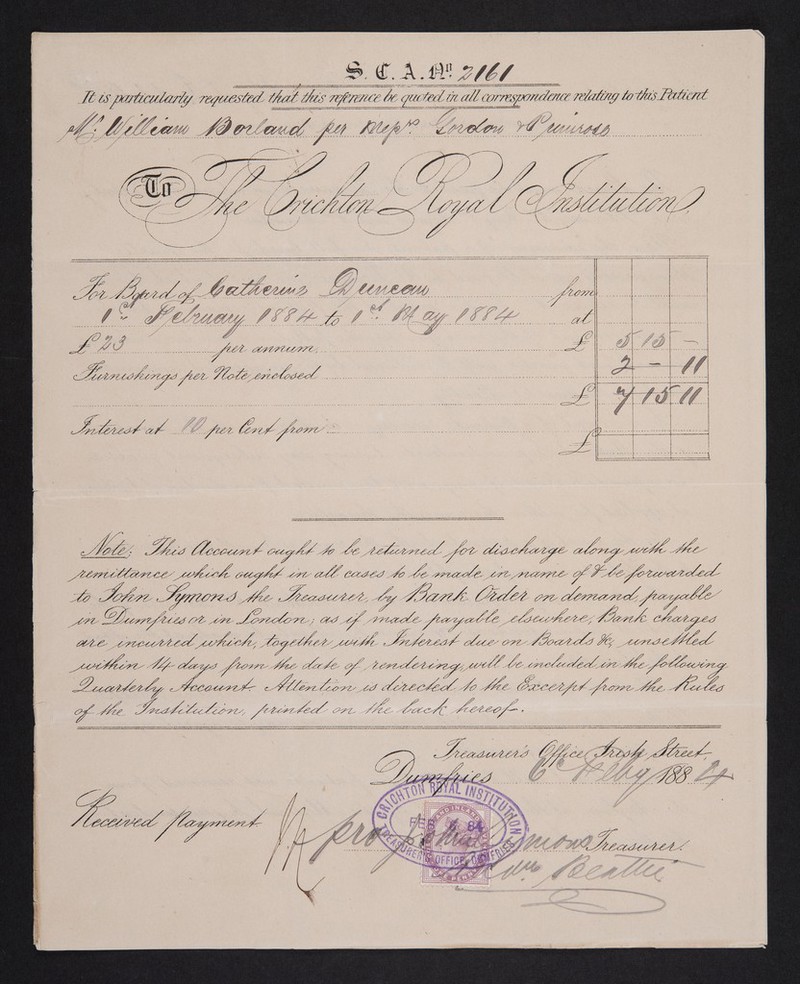 S. C. A. No. 2161
It is particularly requested that this reference be quoted in all correspondence relating to this Patient
Mr. William Borland per Messrs. Gordon & Primrose
To The Crichton Royal Institution
For Board of Catherine Duncan from
1st February 1884 to 1st May 1884 at
£ 23 per annum £ 5 15 –
Furnishings per Note enclosed 2 – 11
£ 7 15 11
Interest at 10 per Cent from
£
Note: This Account ought to be returned for discharge along with the
remittance which ought in all cases to be made in name of & be forwarded
to John Symons the Treasurer, by Bank Order on demand, payable
in Dumfries or in London; as if made payable elsewhere, Bank charges
are incurred which, together with Interest due on Boards &c, unsettled
within 14 days from the date of rendering, will be included in the following
Quarterly Account. Attention is directed to the Excerpt from the Rules
of the Institution, printed on the back hereof.
Treasurer's Office, Irish Street,
Dumfries 6th Feby 1884
CRICHTON ROYAL INSTITUTION
FEB 84
TREASURER'S OFFICE, DUMFRIES
Received Payment
pro John Symons Treasurer.
Beattie